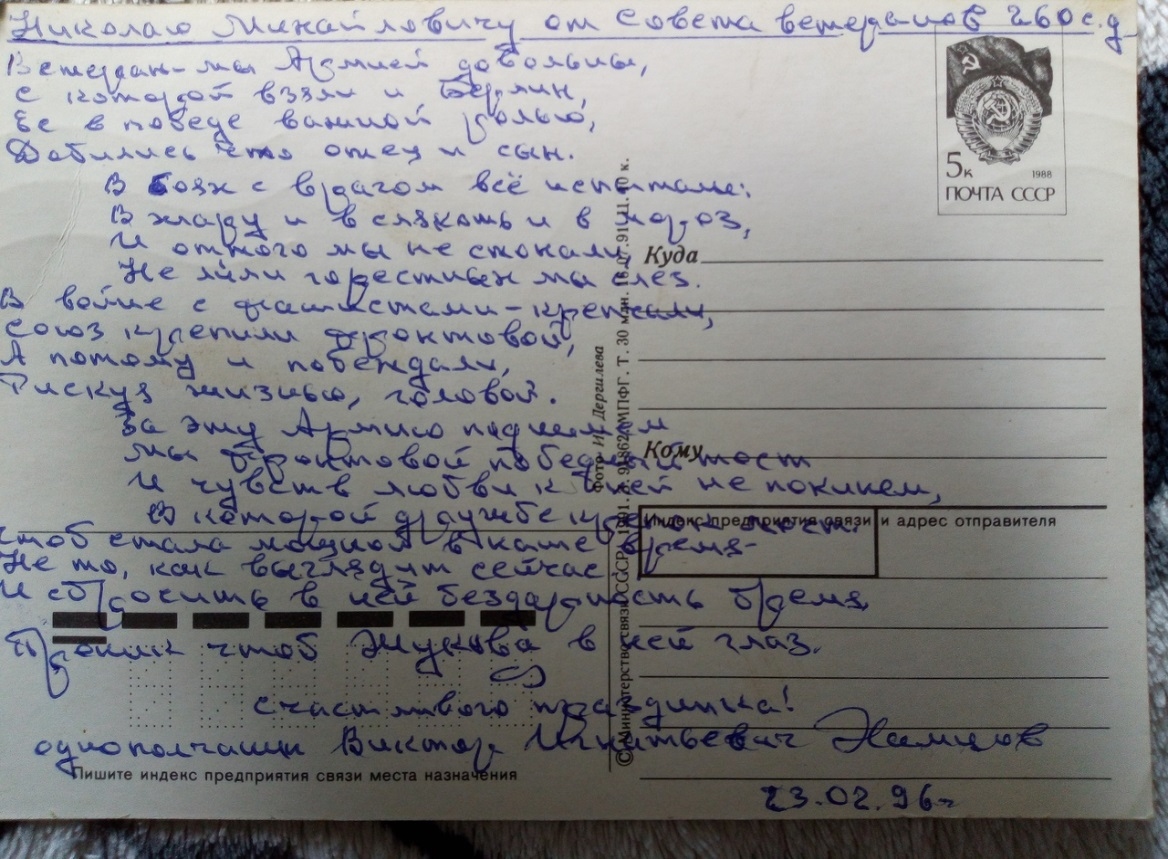 Николаю Михайловичу от Совета ветеранов 260 с.д.
Ветеран-мы Армией довольны,
с которой взяли и Берлин,
Ее в победе важной ролью,
Добились что отец и сын.
В боях с врагом всё испытали:
В жару и в слякоть и в мороз,
И от того мы не стонали,
Не лили горестных мы слез.
В войне с фашистами-крепчали,
Союз крепили фронтовой,
А потому и побеждали,
Рискуя жизнью, головой.
За эту Армию поднимем
мы фронтовой победный тост
И чувств любви к ней не покинем,
В которой дружбе
чтоб стала мощной в наше время-
Не то, как выглядит сейчас
И сбросить в ней бездарность бремя
Проник чтоб Жукова в ней глаз.
Счастливого праздника!
однополчанин Виктор Игнатьевич
23.02.96г
5к 1988
ПОЧТА СССР
Куда
Кому
Индекс предприятия связи и адрес отправителя
Фото И. Дергилева
© Министерство связи СССР. МПФГ. Т. 30 млн.
Пишите индекс предприятия связи места назначения